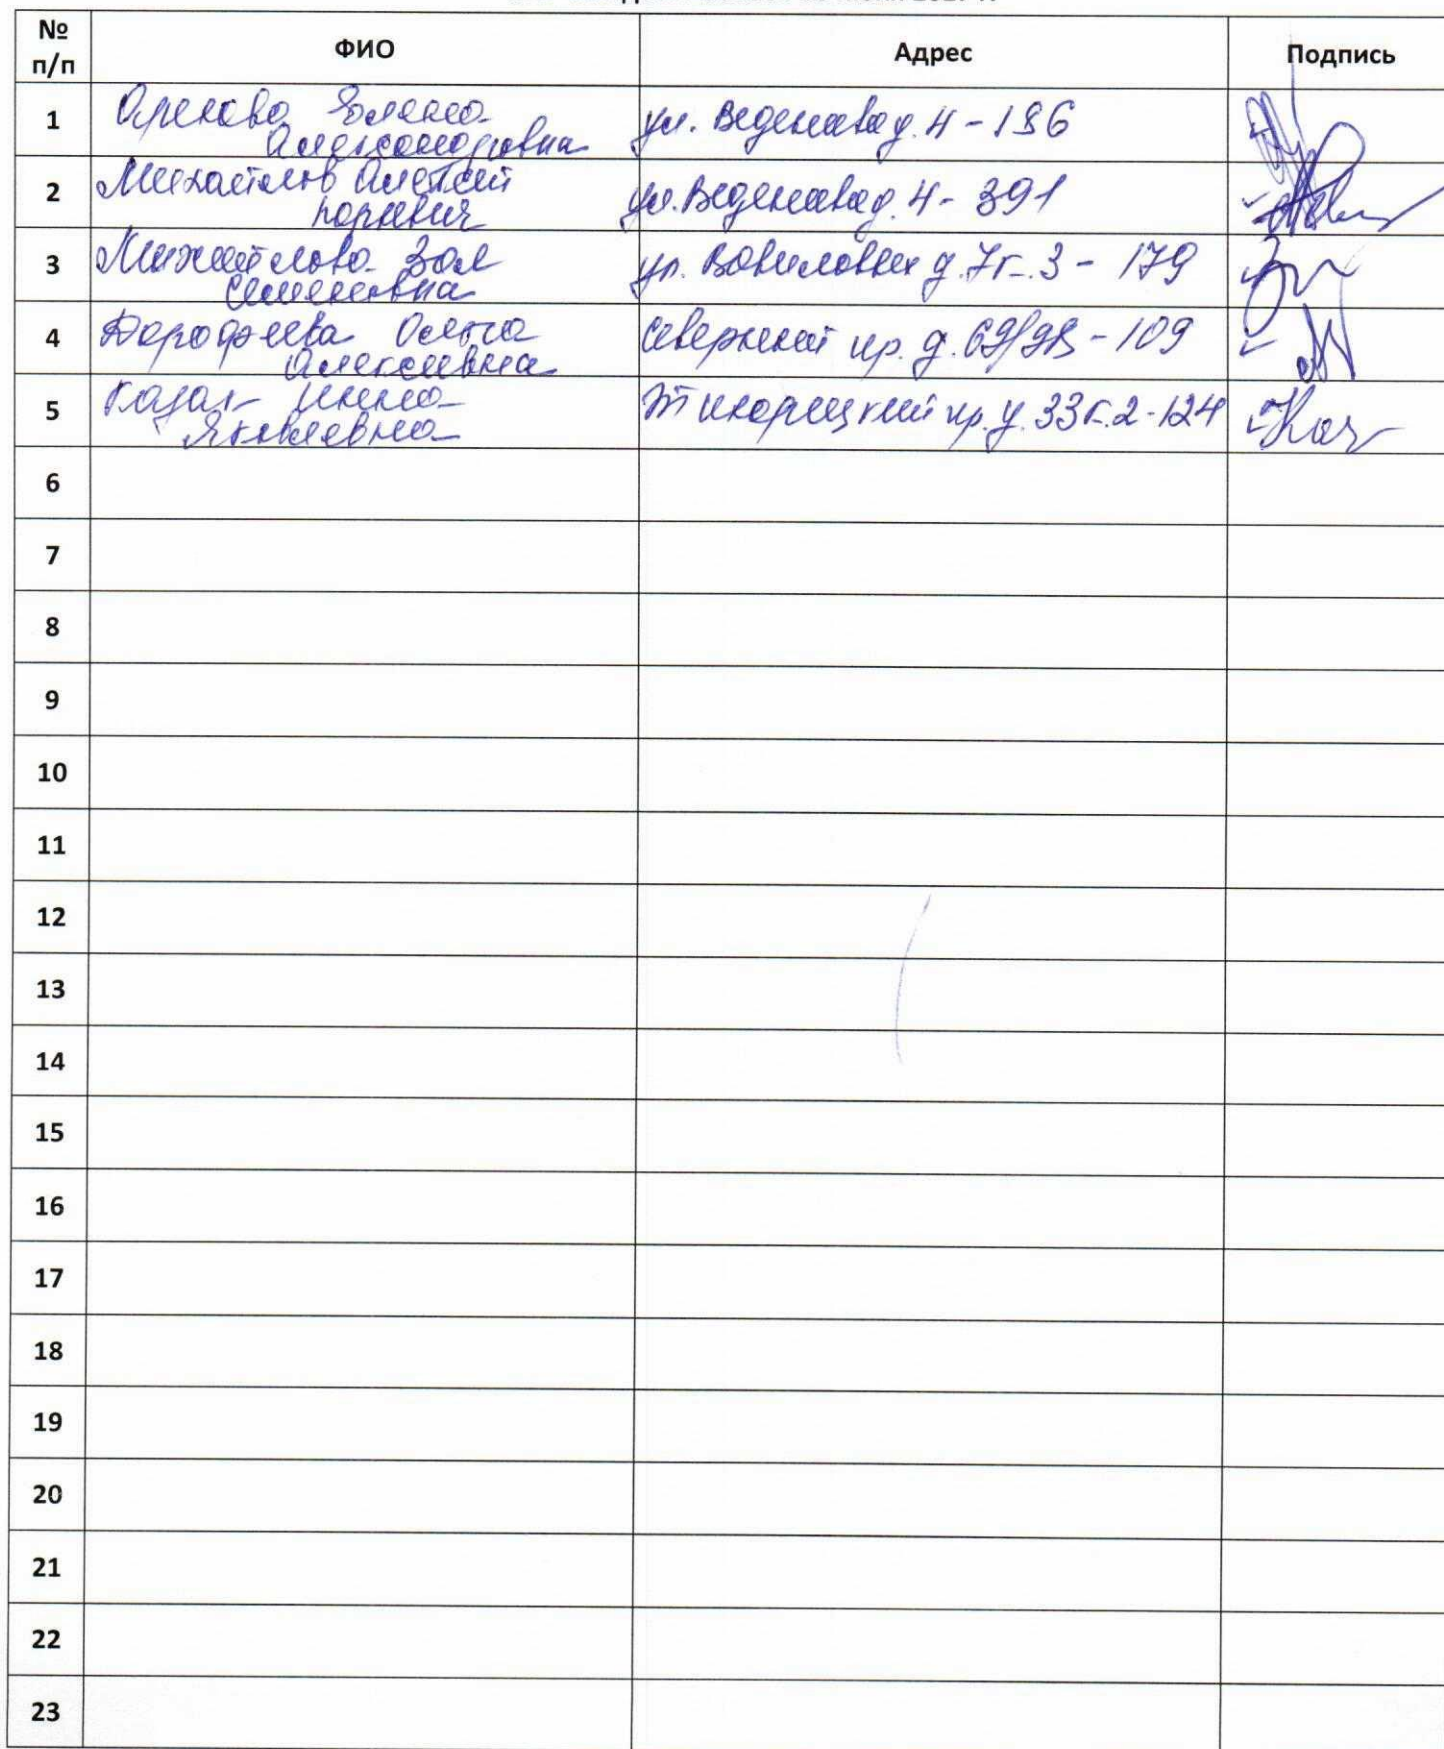 № п/п ФИО Адрес Подпись
1 Орехова Елена Александровна ул. Веденеева д. 4 - 196
2 Михайлов Алексей Юрьевич ул. Веденеева д. 4 - 391
3 Михайлова Зоя Семеновна ул. Вавиловых д. 7 к. 3 - 179
4 Дорофеева Ольга Алексеевна Северный пр. д. - 109
5 Казак Инна Яковлевна Тихорецкий пр. д. 33 к. 2 - 124
6
7
8
9
10
11
12
13
14
15
16
17
18
19
20
21
22
23